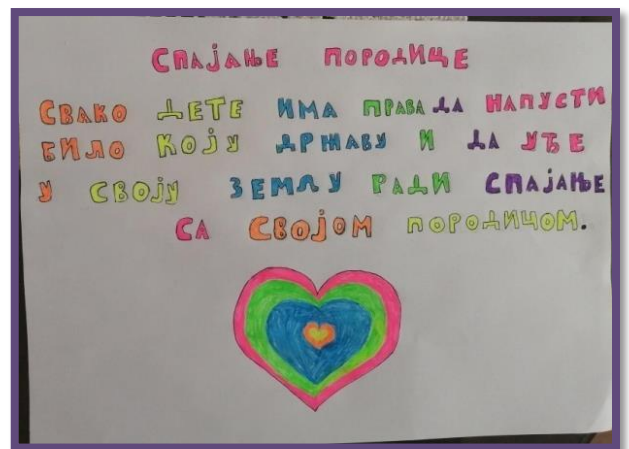 СПАЈАЊЕ ПОРОДИЦЕ
СВАКО ДЕТЕ ИМА ПРАВА ДА НАПУСТИ
БИЛО КОЈУ ДРЖАВУ И ДА УЂЕ
У СВОЈУ ЗЕМЉУ РАДИ СПАЈАЊЕ
СА СВОЈОМ ПОРОДИЦОМ.